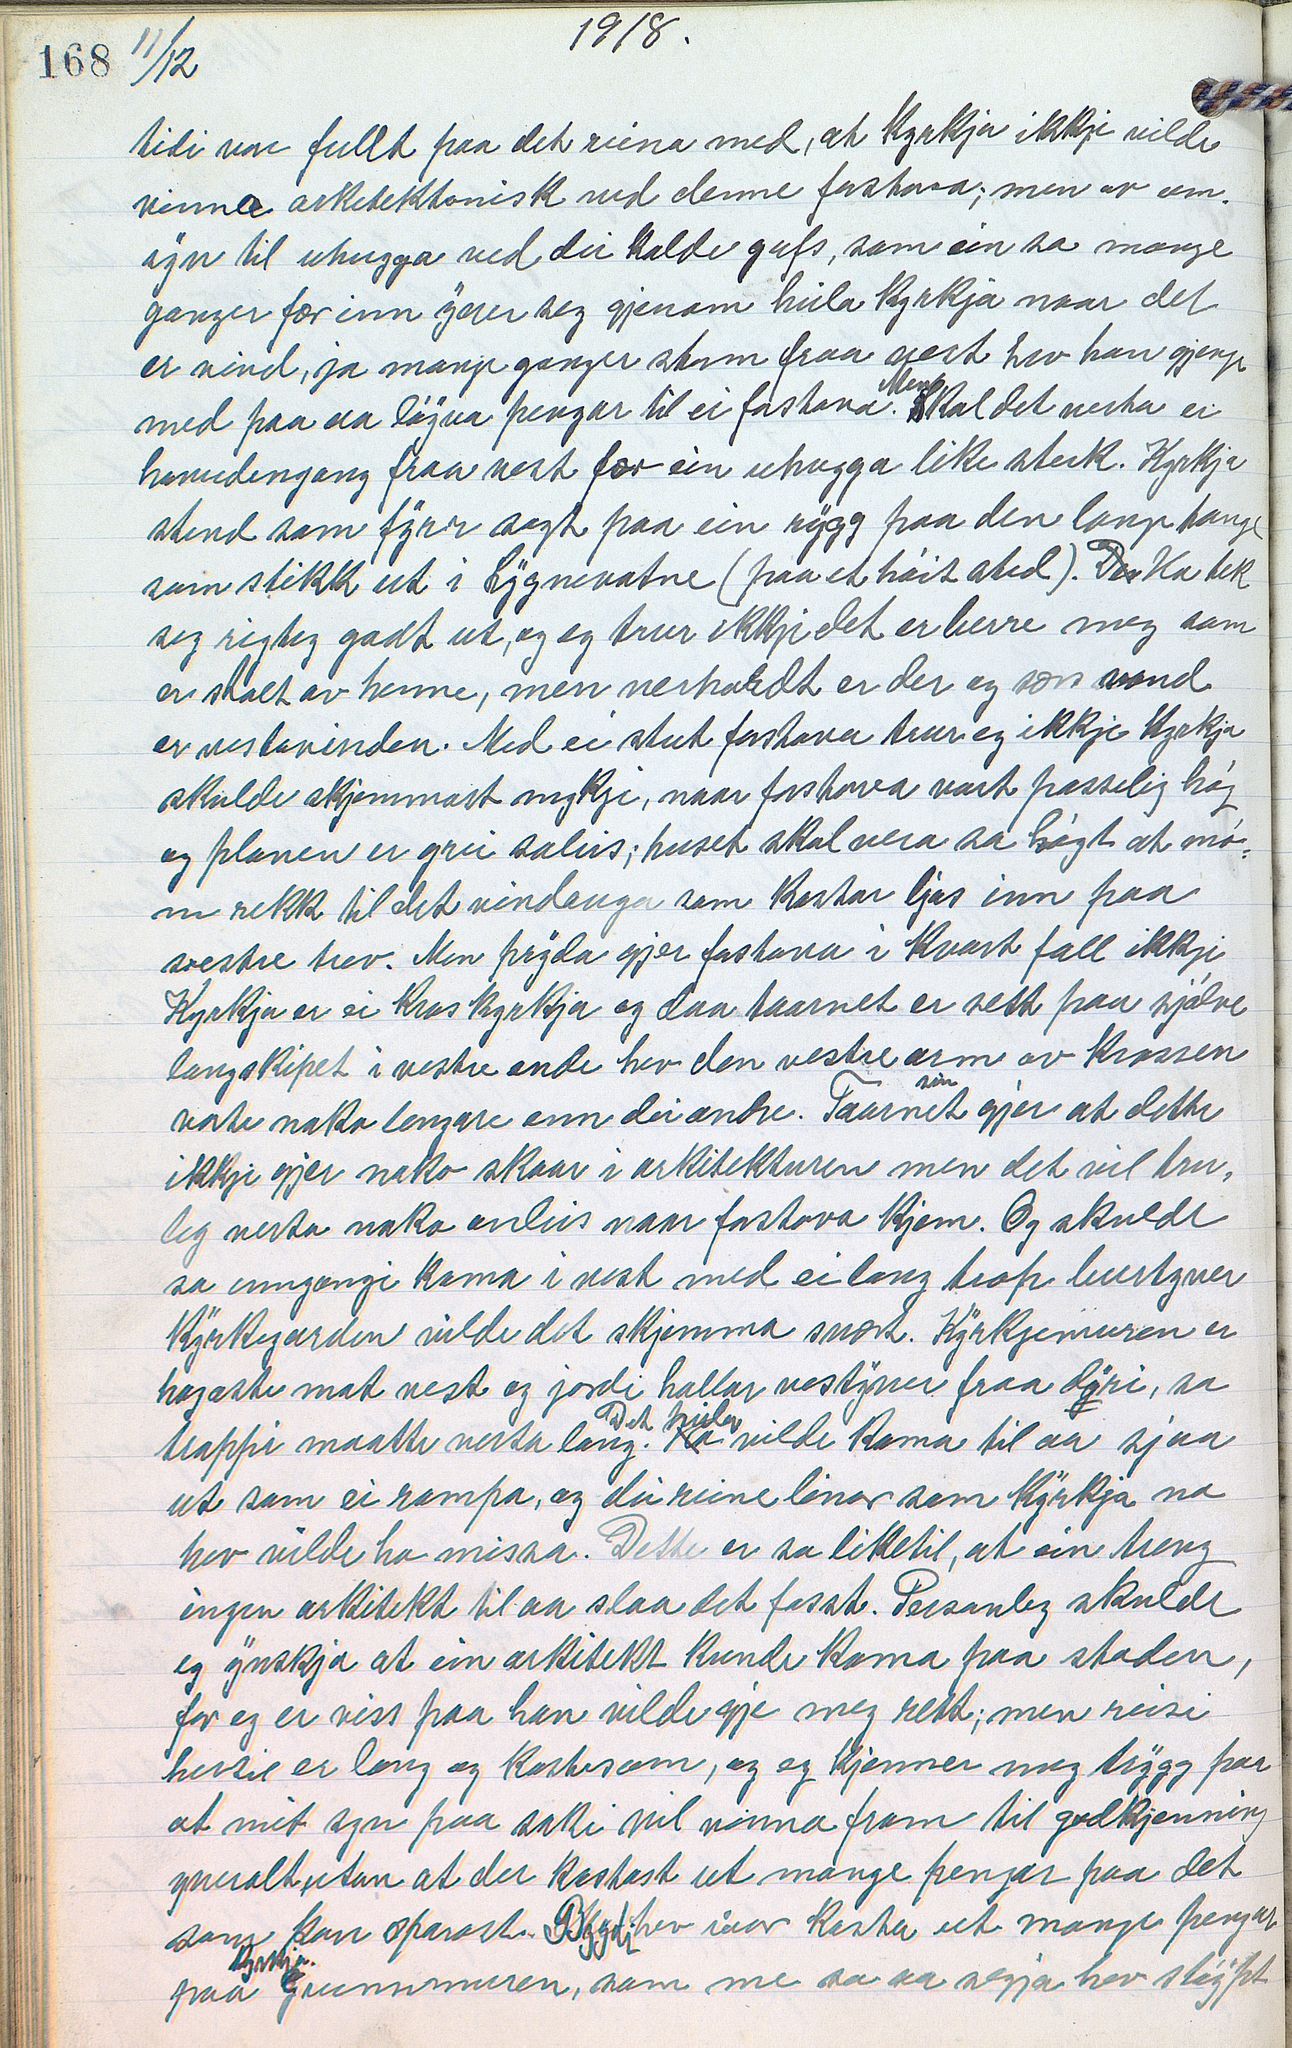 168 11/12 1918.
tidi var fullt paa det reina med, at Kyrkja ikkje vilde
vinna arkitektonisk ved denne forstova; men av om-
syn til uhugga ved dei kalde gufs, som ein so mange
ganger fær inn yver seg gjenom heila Kyrkja naar det
er vind, ja mange ganger storm fraa vest hev han gjenge
med paa aa løyva pengar til ei forstova. Men Skal det verta ei
hovudengang fraa vest fær ein uhugga like sterk. Kyrkja
stend som fyrr sagt paa ein rygg paa den lange tange
som stikk ut i Lygnevatne (paa et høit sted). Ho tek
seg rigteg godt ut, og eg trur ikkje det er berre meg som
er stolt av henne, men verhardt er der og vond
er vestavinden. Med ei stut forstova trur eg ikkje Kyrkja
skulde skjemmast mykje, naar forstova vart passelig høg
og planen er grei soleis; huset skal vera so høgt at mø-
ne rekk til det vindauga som kastar ljos inn paa
vestre trev. Men pryda gjer forstova i kvart fall ikkje
Kyrkja er ei Kroskyrkja og daa taarnet er sett paa sjølve
langskipet i vestre ende hev den vestre arm av krossen
vorte noko lengare enn dei andre. Taarnet gjer at dette
ikkje gjer noko skaar i arkitekturen men det vil tru-
leg verta noko onleis naar forstova kjem. Og skulde
so inngangi koma i vest med ei lang trapp burtyver
Kyrkegarden vilde det skjemma svært. Kyrkjemuren er
høgaste mot vest og jordi hallar vestyver fraa døri, so
trappi maatte verta lang. Det heila vilde koma til aa sjaa
ut som ei rampa, og dei reine linor som Kyrkja no
hev vilde ho missa. Dette er so liketil, at ein treng
ingen arkitekt til aa slaa det fast. Personleg skulde
eg ynskja at ein arkitekt kunde koma paa staden,
for eg er viss paa han vilde gje meg rett; men reisi
hersie er lang og kostesam, og eg kjenner meg trygg paa
at mit syn paa saki vil vinna fram til godkjenning
yveralt, utan at der kastast ut mange pengar paa det
som kan sparast. Bygdi hev iaar kosta ut mange pengar
paa Kyrkja. Grunnmuren, som me so aa segja hev støypt